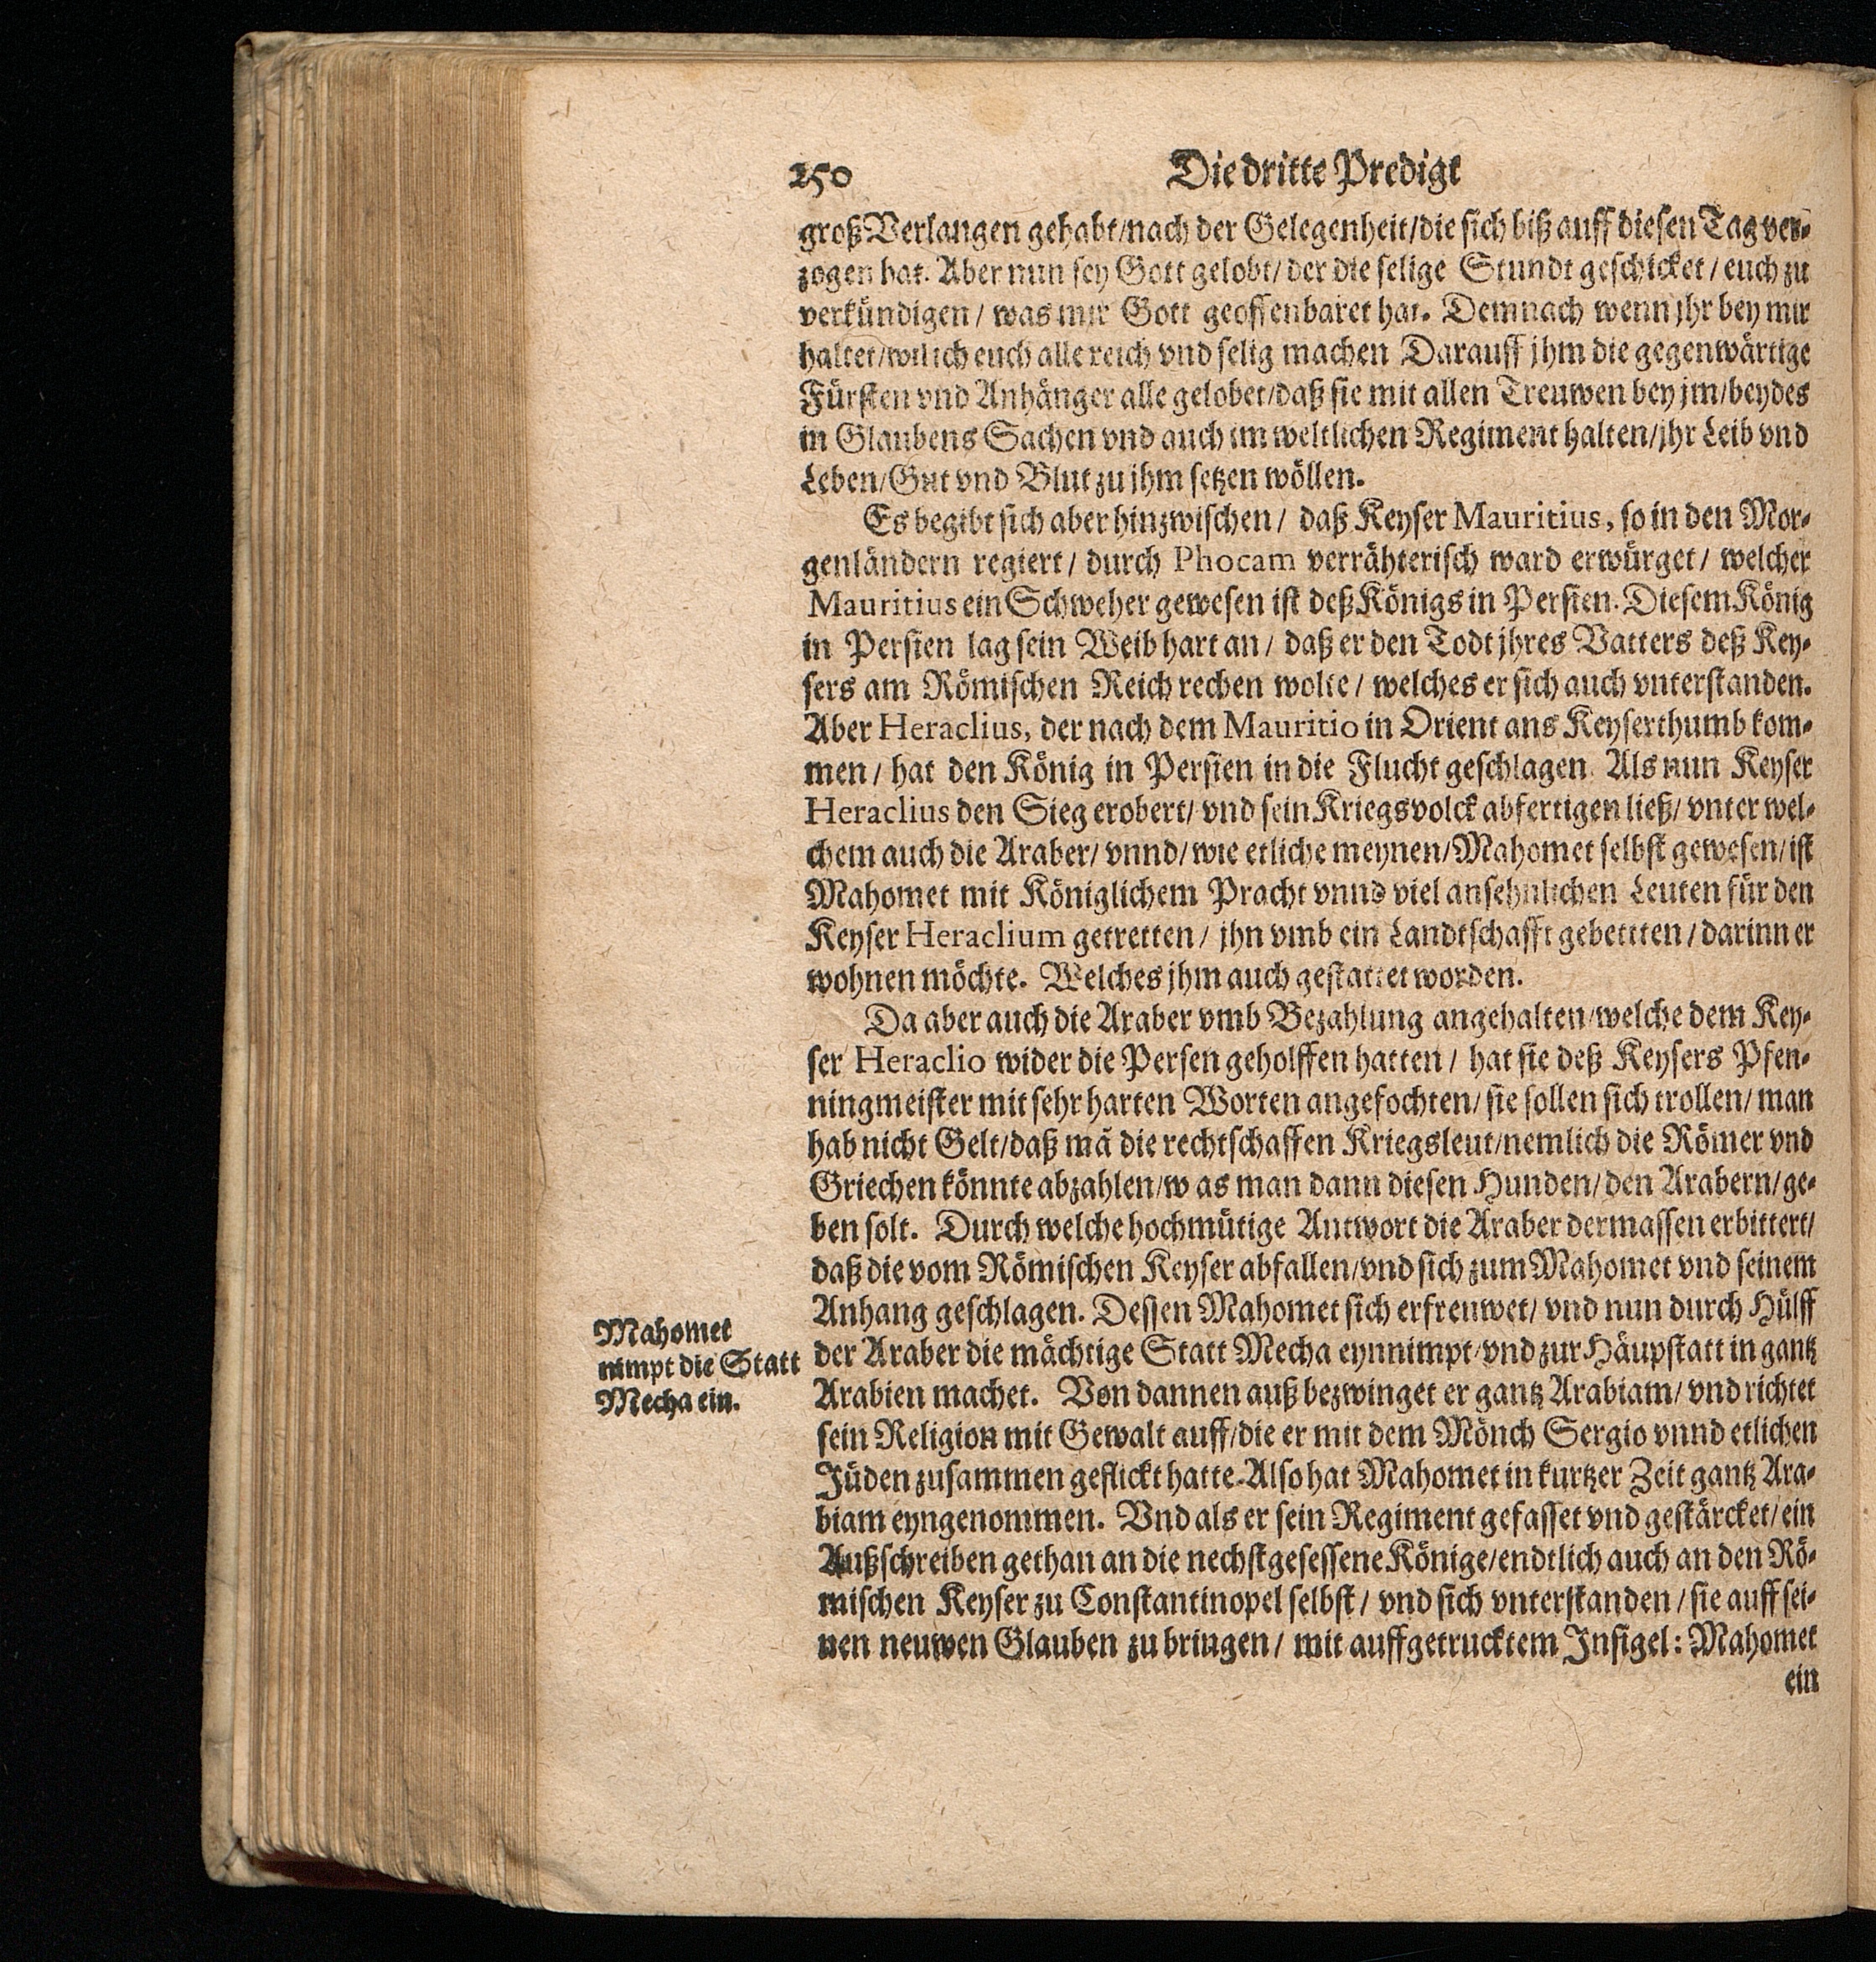 250 Die dritte Predigt
groß Verlangen gehabt/nach der Gelegenheit/die sich biß auff diesen Tag ver-
zogen hat. Aber nun sey Gott gelobt/ der die selige Stundt geschicket / euch zu
verkündigen / was mir Gott geoffenbaret hat. Demnach wenn jhr bey mir
haltet/wil ich euch alle reich vnd selig machen Darauff jhm die gegenwärtige
Fürsten vnd Anhänger alle gelobet/daß sie mit allen Treuwen bey jm/beydes
in Glaubens Sachen vnd auch im weltlichen Regiment halten/jhr Leib vnd
Leben/Gut vnd Blut zu jhm setzen wöllen.
Es begibt sich aber hinzwischen / daß Keyser Mauritius, so in den Mor-
genländern regiert / durch Phocam verrähterisch ward erwürget / welcher
Mauritius ein Schweher gewesen ist deß Königs in Persien. Diesem König
in Persien lag sein Weib hart an / daß er den Todt jhres Vatters deß Key-
sers am Römischen Reich rechen wolte / welches er sich auch vnterstanden.
Aber Heraclius, der nach dem Mauritio in Orient ans Keyserthumb kom-
men / hat den König in Persien in die Flucht geschlagen. Als nun Keyser
Heraclius den Sieg erobert/ vnd sein Kriegsvolck abfertigen ließ/ vnter wel-
chem auch die Araber/ vnnd/ wie etliche meynen/Mahomet selbst gewesen/ ist
Mahomet mit Königlichem Pracht vnnd viel ansehnlichen Leuten für den
Keyser Heraclium getretten / jhn vmb ein Landtschafft gebettten / darinn er
wohnen möchte. Welches jhm auch gestattet worden.
Da aber auch die Araber vmb Bezahlung angehalten/welche dem Key-
ser Heraclio wider die Persen geholffen hatten / hat sie deß Keysers Pfen-
ningmeister mit sehr harten Worten angefochten/ sie sollen sich trollen/ man
hab nicht Gelt/daß mā die rechtschaffen Kriegsleut/nemlich die Römer vnd
Griechen könnte abzahlen/w as man dann diesen Hunden/den Arabern/ge-
ben solt. Durch welche hochmütige Antwort die Araber dermassen erbittert/
daß die vom Römischen Keyser abfallen/vnd sich zum Mahomet vnd seinem
Anhang geschlagen. Dessen Mahomet sich erfreuwet/ vnd nun durch Hülff
der Araber die mächtige Statt Mecha eynnimpt/vnd zur Häupstatt in gantz
Arabien machet. Von dannen auß bezwinget er gantz Arabiam/ vnd richtet
sein Religion mit Gewalt auff/die er mit dem Mönch Sergio vnnd etlichen
Jüden zusammen geflickt hatte. Also hat Mahomet in kurtzer Zeit gantz Ara-
biam eyngenommen. Vnd als er sein Regiment gefasset vnd gestärcket/ ein
Außschreiben gethan an die nechstgesessene Könige/endtlich auch an den Rö-
mischen Keyser zu Constantinopel selbst / vnd sich vnterstanden / sie auff sei-
nen neuwen Glauben zu bringen / mit auffgetrucktem Insigel: Mahomet
ein
Mahomet
nimpt die Statt
Mecha ein.